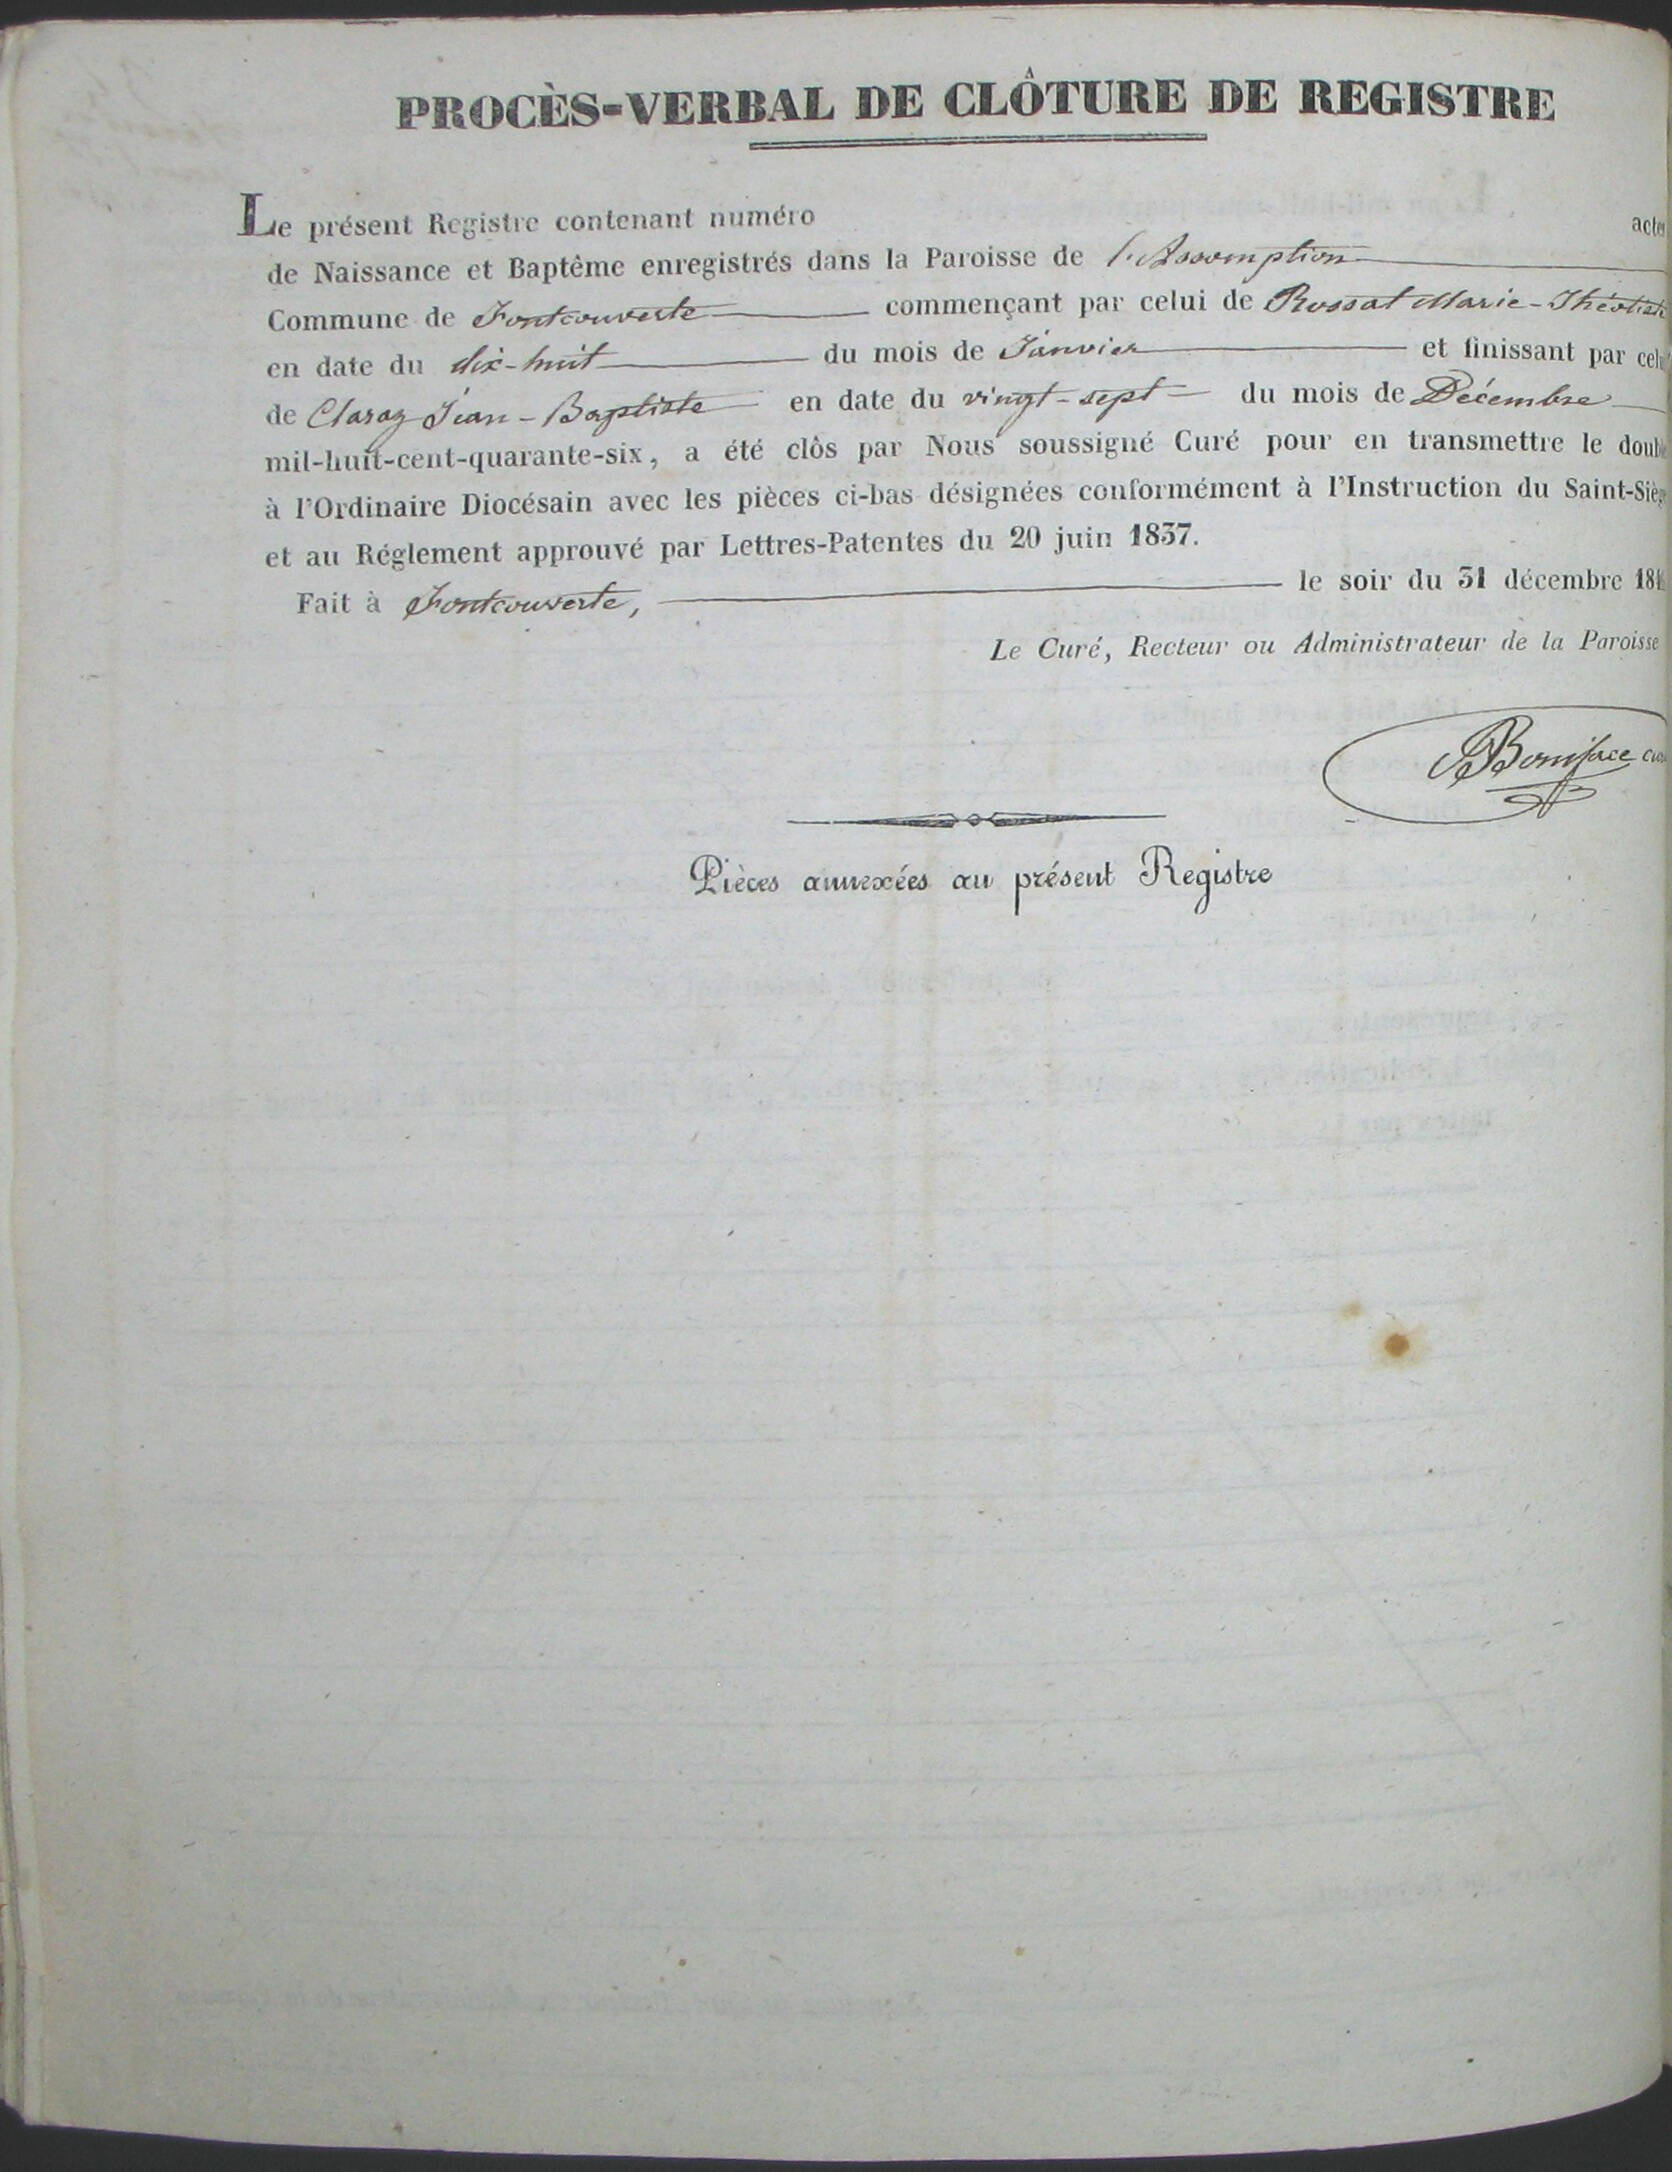 PROCÈS-VERBAL DE CLÔTURE DE REGISTRE
Le présent Registre contenant numéro actes
de Naissance et Baptême enregistrés dans la Paroisse de l'Assomption
Commune de Fontcouverte commençant par celui de Rossat Marie-Théotiste
en date du dix-huit du mois de Janvier et finissant par celui
de Claraz Jean-Baptiste en date du vingt-sept du mois de Décembre
mil-huit-cent-quarante-six, a été clôs par Nous soussigné Curé pour en transmettre le double
à l'Ordinaire Diocésain avec les pièces ci-bas désignées conformément à l'Instruction du Saint-Siège
et au Réglement approuvé par Lettres-Patentes du 20 juin 1837.
Fait à Fontcouverte, le soir du 31 décembre 1846
Le Curé, Recteur ou Administrateur de la Paroisse
Boniface curé
Pièces annexées au présent Registre